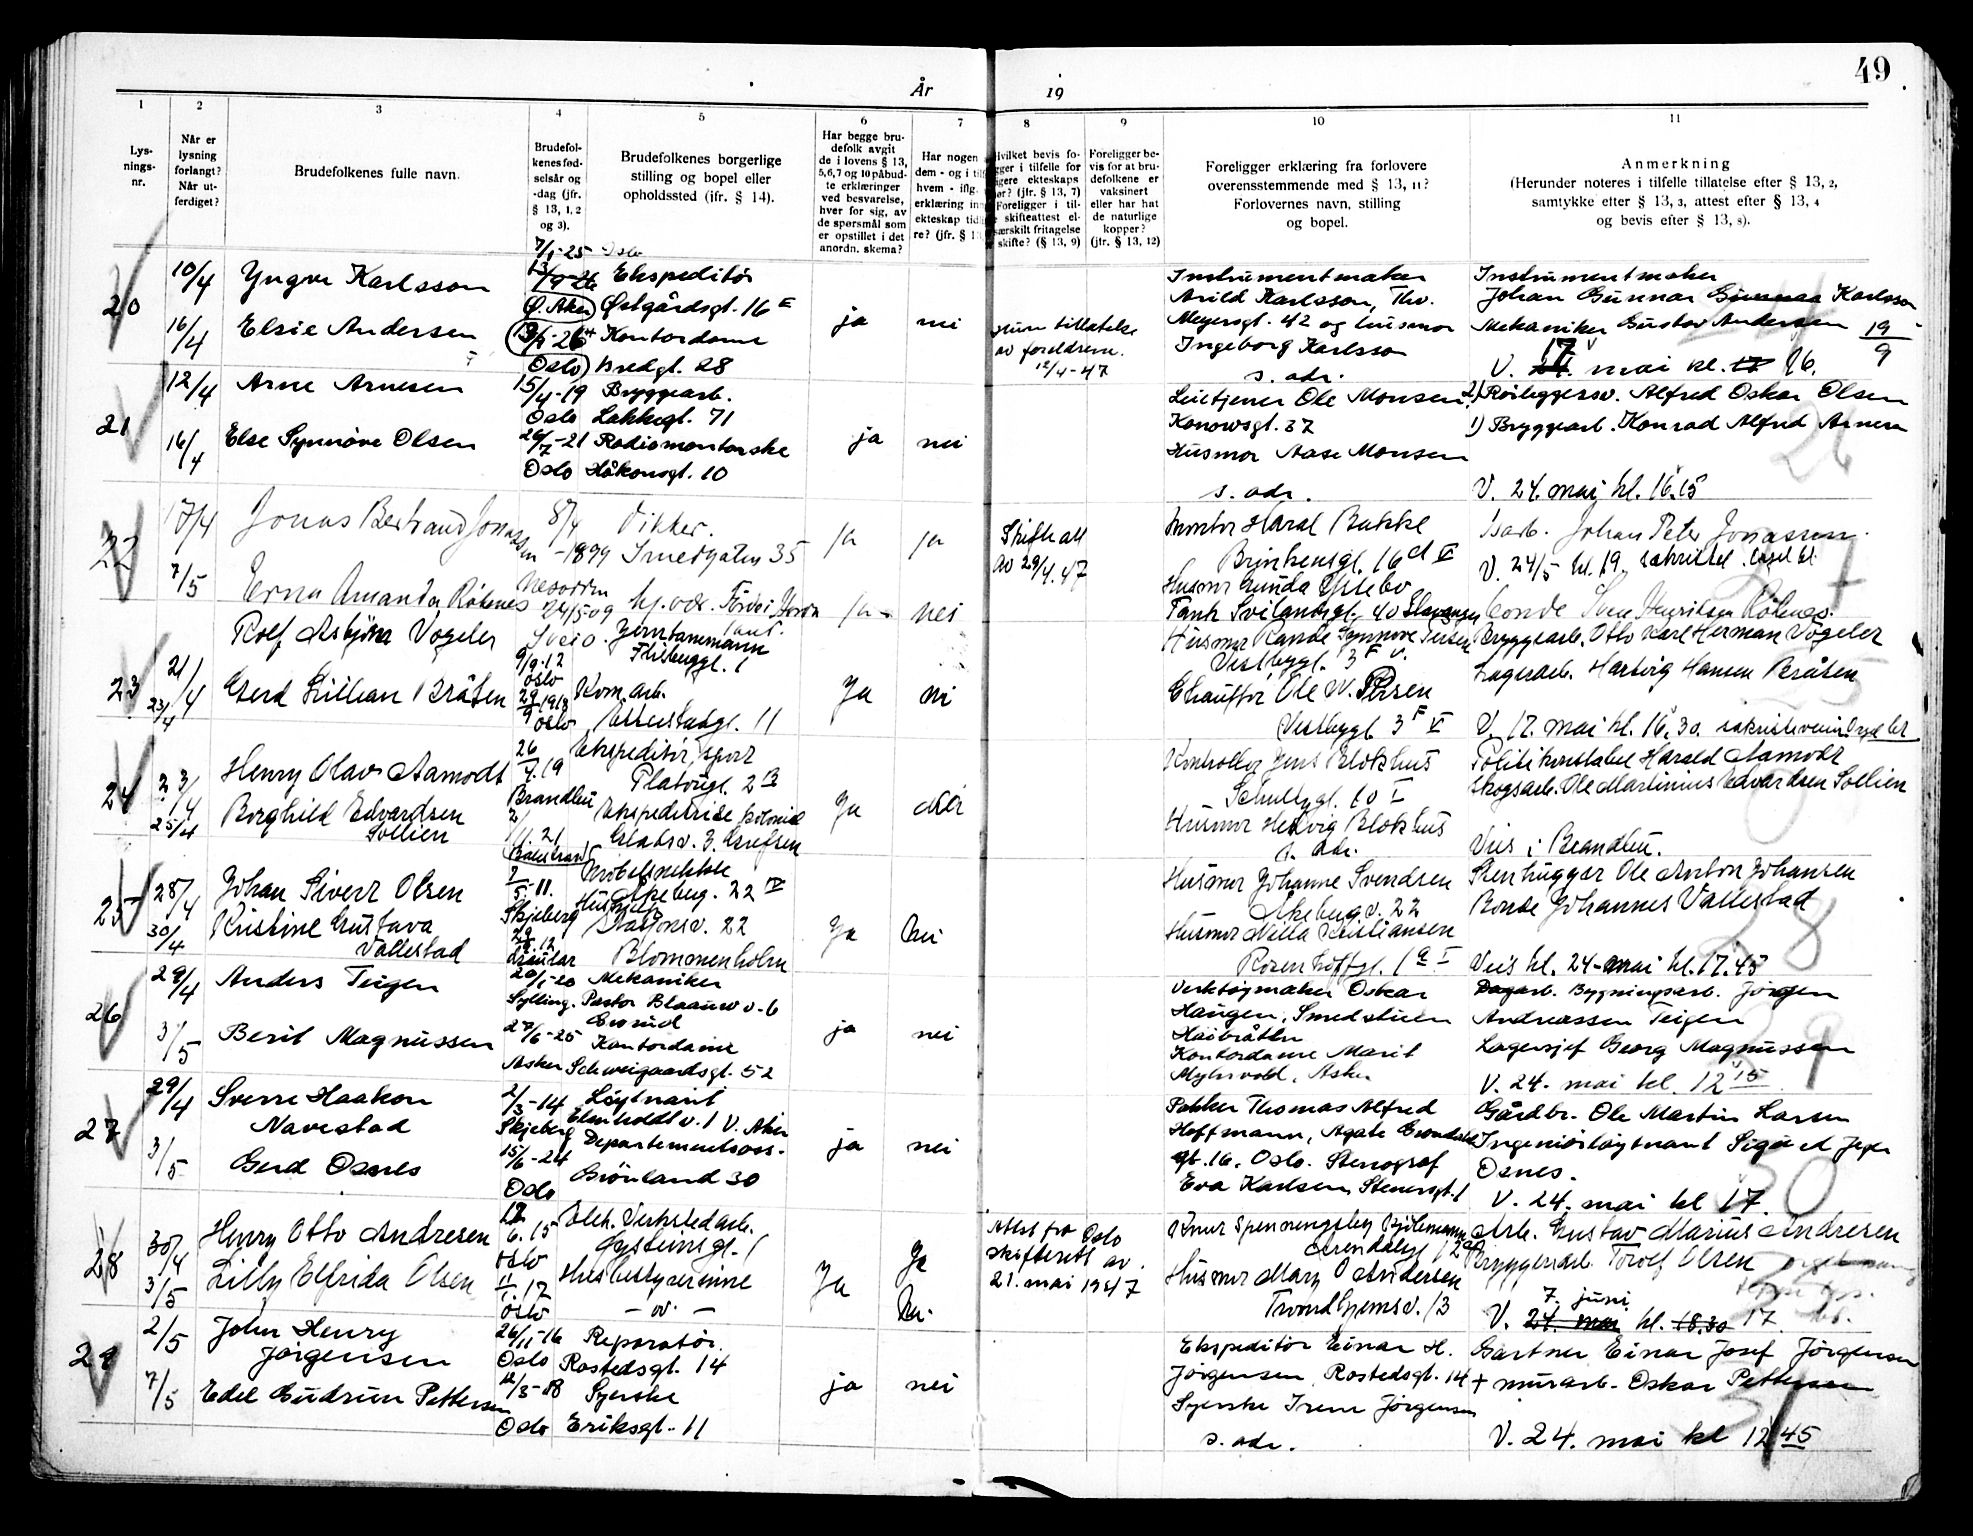 49
År
19
1
2
3
4
5
6
7
8
9
10
11
Lys-
nings-
nr.
Når er
lysning
forlangt?
Når ut-
ferdiget?
Brudefolkenes fulle navn.
Brudefol-
kenes fød-
selsår og
-dag (jfr.
§ 13, 1, 2
og 3).
Brudefolkenes borgerlige
stilling og bopel eller
opholdssted (jfr. § 14).
Har begge bru-
defolk avgit
de i lovens § 13,
5,6,7 og 10 påbud-
te erklæringer
ved besvarelse,
hver for sig, av
de spørsmål som
er opstillet i det
anordn. skema?
Har nogen
dem - og i til
hvem - iflg.
erklæring in
ekteskap tid
re? (jfr. § 1
Hvilket bevis fo-
gger i tilfelle for
gere ekteskaps
ør? (jfr. § 13, 7)
Foreligger i til-
e skifteattest el-
særskilt fritagelse
skifte? (§ 13, 9)
Foreligger be-
vis for at bru-
defolkene er
vaksinert
eller har hat
de naturlige
kopper?
(jfr. § 13, 12)
Foreligger erklæring fra forlovere
overensstemmende med § 13, 11?
Forlovernes navn, stilling
og bopel.
Anmerkning
(Herunder noteres i tilfelle tillatelse efter § 13, 2,
samtykke efter § 13, 3, attest efter § 13, 4
og bevis efter § 13, 8).
20
10/4
Yngve Karlsson
7/1-25 Oslo
13/9-26 Ekspeditør
Ø. Aker Østgårdsgt. 16
16/4
Elsie Andersen
Kontordame
Oslo Bredgt. 28
ja
nei
tillatelse
av foreldrene.
12/4-47
Instrumentmaker
Arild Karlsson, Thv.
Meyersgt. 42 og husmor
Ingeborg Karlsson
s. adr.
Instrumentmaker
Johan Gunnar Gunnar Karlsson
Mekaniker Gustav Andersen 19/9
V. 17 mai kl. 17 16.
21
12/4
Arne Arnesen
15/4-19 Bryggearb.
Oslo Lakkegt. 71
16/4
Else Synnøve Olsen
26/7-21 Radiomontørske
Oslo Håkonsgt. 10
ja
nei
Ole Monsen
Konowsgt. 37
Husmor Aase Monsen
s. adr.
2) Rørleggersv. Alfred Oskar Olsen
1) Bryggearb. Konrad Alfred Arnesen
V. 24. mai kl. 16.15
26
22
17/4
Jonas Bertrand Jonassen
8/4 -1899
Smedgaten 35
7/5
Erna Amanda Rölnes
Nesodden
24/5 09
Sveio.
ja
ja
nei
Skifteatt
av 29/4.47
Montør Haral Bakke
Brinkensgt. 16 d V
Husmor Gunda Ystebø
Johan Peter Jonassen.
V. 24/5 kl. 19. sakristiet.
27
23
21/4
23/4
Rolf Asbjørn Vogeler
9/9.12
Oslo
Flisbyggt. 1
Gerd Lillian Bråten
29/9 1918
Oslo
Kom. arb.
11
Ja
nei
Husmor Synnøve Iversen
Vestbygt. 3
Chauffør Ole W. Iversen
Vestbygt. 3 F V
Bryggearb. Otto Karl Herman Vogeler
Lagerarb. Hartvig Hansen Bråten
V. 17. mai kl. 16.30. sakristeveien
24
23/4
25/4
Henry Olav Aamodt
26/7.19
Brandbu
Ekspeditør, sport
Platougt. 2 B
Borghild Edvardsen
Sollien
Ekspeditrise kolonial
v. 3. Grefsen
Ja
Nei
Kontrollør Jens Blokhus
Schultzgt. 10 I
Husmor Hedvig Blokhus
s. adr.
Politikonstabel Harald Aamodt
Skogsarb. Ole Martinius Edvardsen Sollien
Vies i Brandbu.
25
28/4
30/4
Johan Sivert Olsen
Møbelsnekker
Åkeberg. 22 IV
Skjeberg
Kristine Gustava
Vallestad
v. 22
Blommenholm
Ja
Nei
Husmor Johanne Svendsen
Åkebergv. 22
Husmor Nilla Kristiansen
Rosenhoffgt. 1 a I
Stenhugger Ole Anton Johansen
Bonde Johannes Vallestad
Vies kl. 24- mai kl. 17.45
28
26
29/4
Anders Teigen
20/1-20 Mekaniker
Sylling. Pastor Blaauw v. 6
3/5
Berit Magnussen
27/6-25 Kontordame
Asker Schweigaardsgt. 52
ja
nei
Verktøymaker Oskar
Haugen, Smedstuen
Kontordame Marit
Myhrvold, Asker
Dagarb. Bygningsarb. Jørgen
Andreassen Teigen
Lagersjef Georg Magnussen
V. 24. mai kl. 12 15
29
27
29/4
Sverre Haakon
Navestad
2/3-14 Løytnant
Skjeberg v. 1 V. Aker
3/5
Gerd Osnes
15/6-24 Departementsass.
Oslo Grønland 30
ja
nei
Pakker Thomas Alfred
Hoffmann, Agate Grøndahls
gt. 16. Oslo. Stenograf
Eva Karlsen, Stenersgt. 1
Gårdbr. Ole Martin Larsen
Ingeniørløytnant Sigurd
Osnes.
V. 24. mai kl 17.
30
28
30/4
Henry Otto Andresen
6. 15
Oslo
Elek. Verkstedarb.
Eysteinsgt. 1
3/5
Lilly Elfrida Olsen
11/1. 17
Oslo
Husbestyrerinne
Ja
Ja
Nei
Attest fra Oslo
skifterett av
21. mai 1947
Arendalsgt.
Husmor Mary O Andersen
Trondhjemsv. 13
Arb. Gustav Marius Andresen
Bryggeriarb. Torolf Olsen
7. juni
V. 24. mai kl. 18.30 17
29
2/5
John Henry
Jörgensen
26/11-16 Reparatør.
Oslo Rostedsgt. 14
7/5
Edel Gudrun Pettersen
12/3-18 Syerske
Oslo Eriksgt. 11
ja
nei
Ekspeditør Einar H.
Jörgensen, Rostedsgt. 14
Syerske Irene Jörgensen
s. adr.
Gartner Einar Josef Jörgensen
+ murarb. Oskar Pettersen
V. 24. mai kl 12 45
31